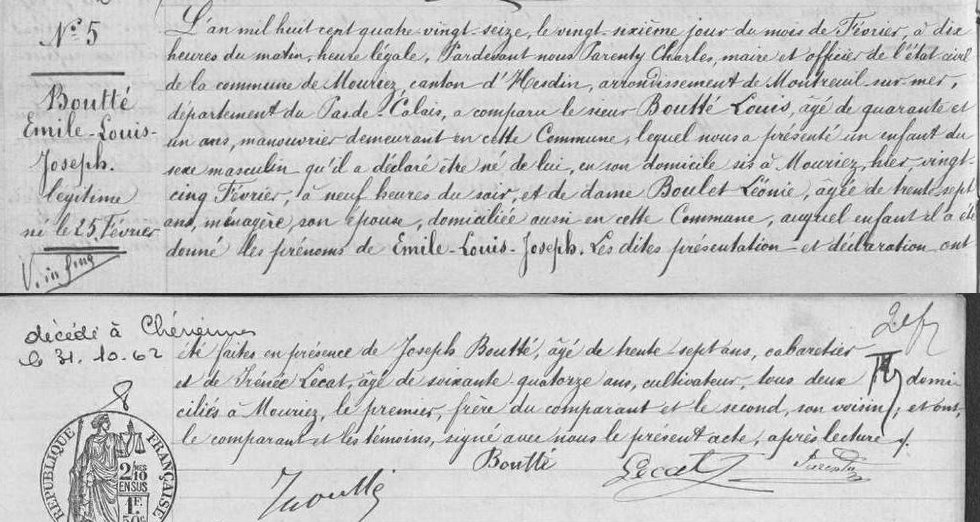 N° 5
Boutté
Emile-Louis-
Joseph.
légitime
né le 25 Février
V. in fine
L'an mil huit cent quatre-vingt-seize, le vingt-sixième jour du mois de Février, à dix
heures du matin, heure légale, Pardevant nous Parenty Charles, maire et officier de l'état civil
de la commune de Mouriez, canton d'Hesdin, arrondissement de Montreuil-sur-mer,
département du Pas-de-Calais, a comparu le sieur Boutté Louis, âgé de quarante et
un ans, manouvrier demeurant en cette Commune, lequel nous a présenté un enfant du
sexe masculin qu'il a déclaré être né de lui, en son domicile sis à Mouriez, hier, vingt-
cinq Février, à neuf heures du soir, et de dame Boulet Léonie, âgée de trente-sept
ans, ménagère, son épouse, domiciliée aussi en cette Commune, auquel enfant il a été
donné les prénoms de Emile-Louis-Joseph. Les dites présentation et déclaration ont
décédé à Chériennes
le 31.10.62
été faites en présence de Joseph Boutté, âgé de trente-sept ans, cabaretier
et de Irénée Lecat, âgé de soixante-quatorze ans, cultivateur, tous deux domi-
ciliés à Mouriez, le premier, frère du comparant et le second, son voisin; et ont,
le comparant et les témoins, signé avec nous le présent acte, après lecture.
Boutté
Lecat
Parenty
J Boutté
8
RÉPUBLIQUE FRANÇAISE
2/10
EN SUS
1F.
50c